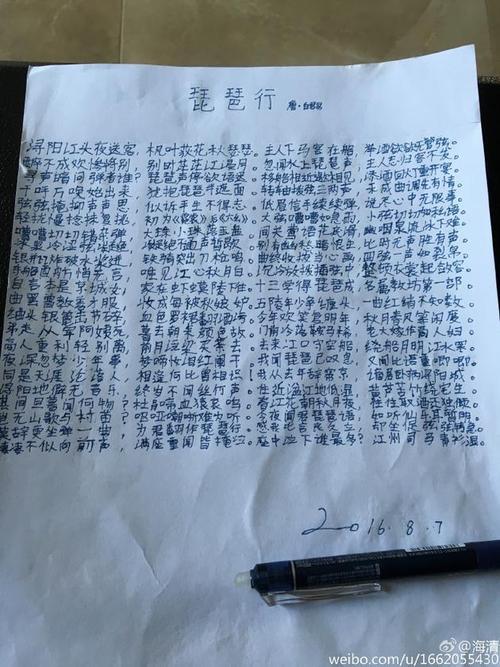 琵琶行 唐·白居易
浔阳江头夜送客,枫叶荻花秋瑟瑟。主人下马客在船,举酒欲饮无管弦。
醉不成欢惨将别,别时茫茫江浸月。忽闻水上琵琶声,主人忘归客不发。
寻声暗问弹者谁?琵琶声停欲语迟。移船相近邀相见,添酒回灯重开宴。
千呼万唤始出来,犹抱琵琶半遮面。转轴拨弦三两声,未成曲调先有情。
弦弦掩抑声声思,似诉平生不得志。低眉信手续续弹,说尽心中无限事。
轻拢慢捻抹复挑,初为《霓裳》后《六幺》。大弦嘈嘈如急雨,小弦切切如私语。
嘈嘈切切错杂弹,大珠小珠落玉盘。间关莺语花底滑,幽咽泉流冰下难。
冰泉冷涩弦凝绝,凝绝不通声暂歇。别有幽愁暗恨生,此时无声胜有声。
银瓶乍破水浆迸,铁骑突出刀枪鸣。曲终收拨当心画,四弦一声如裂帛。
东船西舫悄无言,唯见江心秋月白。沉吟放拨插弦中,整顿衣裳起敛容。
自言本是京城女,家在虾蟆陵下住。十三学得琵琶成,名属教坊第一部。
曲罢曾教善才服,妆成每被秋娘妒。五陵年少争缠头,一曲红绡不知数。
钿头银篦击节碎,血色罗裙翻酒污。今年欢笑复明年,秋月春风等闲度。
弟走从军阿姨死,暮去朝来颜色故。门前冷落鞍马稀,老大嫁作商人妇。
商人重利轻别离,前月浮梁买茶去。去来江口守空船,绕船月明江水寒。
夜深忽梦少年事,梦啼妆泪红阑干。我闻琵琶已叹息,又闻此语重唧唧。
同是天涯沦落人,相逢何必曾相识。我从去年辞帝京,谪居卧病浔阳城。
浔阳地僻无音乐,终岁不闻丝竹声。住近湓江地低湿,黄芦苦竹绕宅生。
其间旦暮闻何物?杜鹃啼血猿哀鸣。春江花朝秋月夜,往往取酒还独倾。
岂无山歌与村笛?呕哑嘲哳难为听。今夜闻君琵琶语,如听仙乐耳暂明。
莫辞更坐弹一曲,为君翻作琵琶行。感我此言良久立,却坐促弦弦转急。
凄凄不似向前声,满座重闻皆掩泣。座中泣下谁最多?江州司马青衫湿。
2016.8.7
@海清
weibo.com/u/1662055430